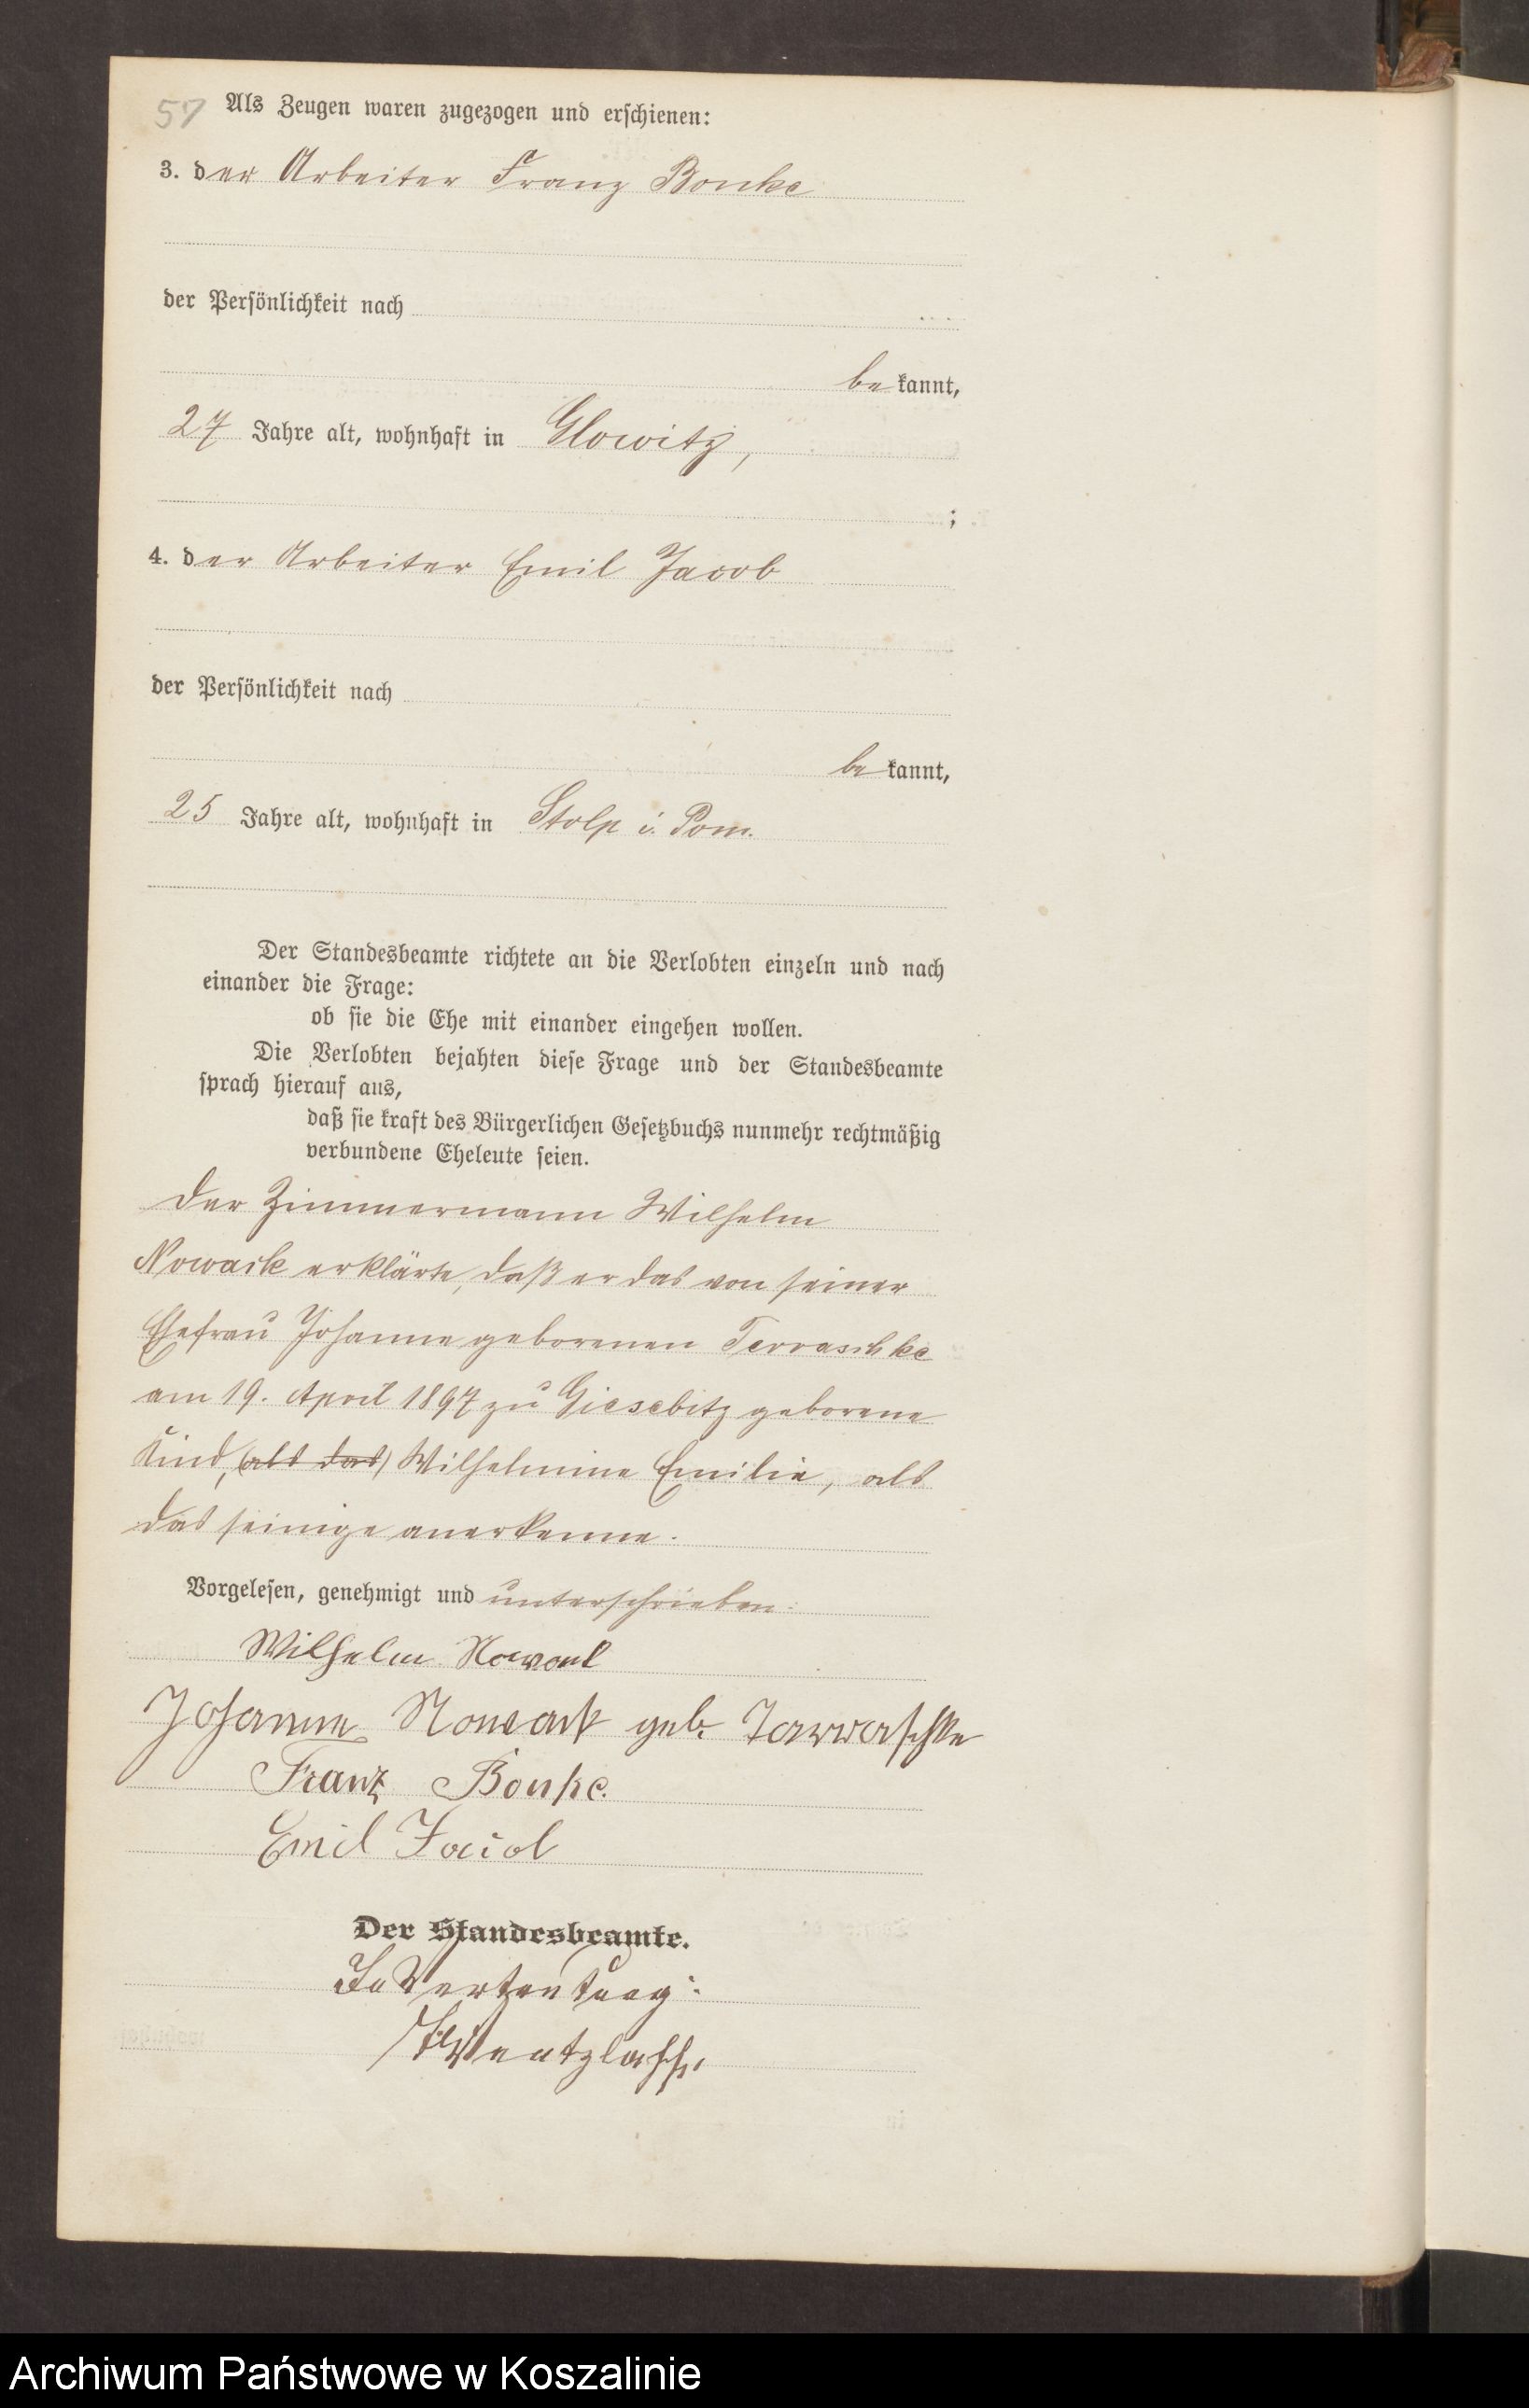 57 Als Zeugen waren zugezogen und erschienen:
3. der Arbeiter Franz Bonke
der Persönlichkeit nach
bekannt,
27 Jahre alt, wohnhaft in Glowitz,
;
4. der Arbeiter Emil Jacob
der Persönlichkeit nach
bekannt,
25 Jahre alt, wohnhaft in Stolp i. Pom.
Der Standesbeamte richtete an die Verlobten einzeln und nach
einander die Frage:
ob sie die Ehe mit einander eingehen wollen.
Die Verlobten bejahten diese Frage und der Standesbeamte
sprach hierauf aus,
daß sie kraft des Bürgerlichen Gesetzbuchs nunmehr rechtmäßig
verbundene Eheleute seien.
Der Zimmermann Wilhelm
Nowack erklärte, daß er das von seiner
Ehefrau Johanne geborenen Terraschke
am 19. April 1897 zu Giesebitz geborene
Kind, (als das) Wilhelmine Emilie, als
das seinige anerkenne.
Vorgelesen, genehmigt und unterschrieben:
Wilhelm Nowack
Johanne Nowack geb. Tarraschke
Franz Bonke.
Emil Jacob
Der Standesbeamte.
In Vertretung:
Wentzlaff.
Archiwum Państwowe w Koszalinie